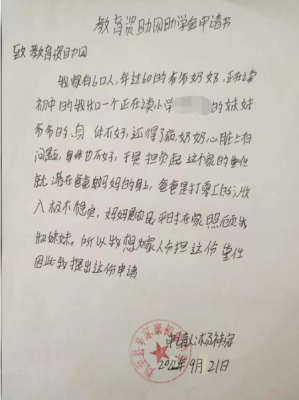 教育资助网助学金申请书
致 教育资助网
我家有6口人,年过60的爷爷奶奶,正在读
初中的我和一个正在读小学的妹妹
爷爷的身体不好,还得了 奶奶心脏上有
问题,身体也不好,于是担负起这个家的重任
就落在爸爸妈妈的身上,爸爸是打零工的,收
入极不稳定,妈妈是农民,平时在家照顾我
和妹妹。所以我想为家人分担这份重任
因此我提出这份申请
申请人:杨
2022年9月21日